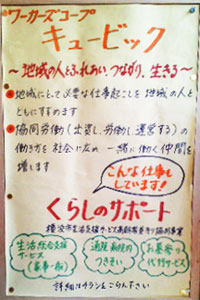 ワーカーズコープ
キュービック
～地域の人とふれあい、つながり、生きる～
●地域にとって必要な仕事起こしを地域の人と
ともにすすめます
●協同労働(出資し、労働し、運営する)の
働き方を社会に広め 一緒に働く仲間を
増します
こんな仕事も
しています!
くらしのサポート
横浜市生活支援サービス
生活総合支援
サービス
(家事一般)
通院・病院内
つきそい
お墓参り
代行サービス
詳細はチラシをごらん下さい